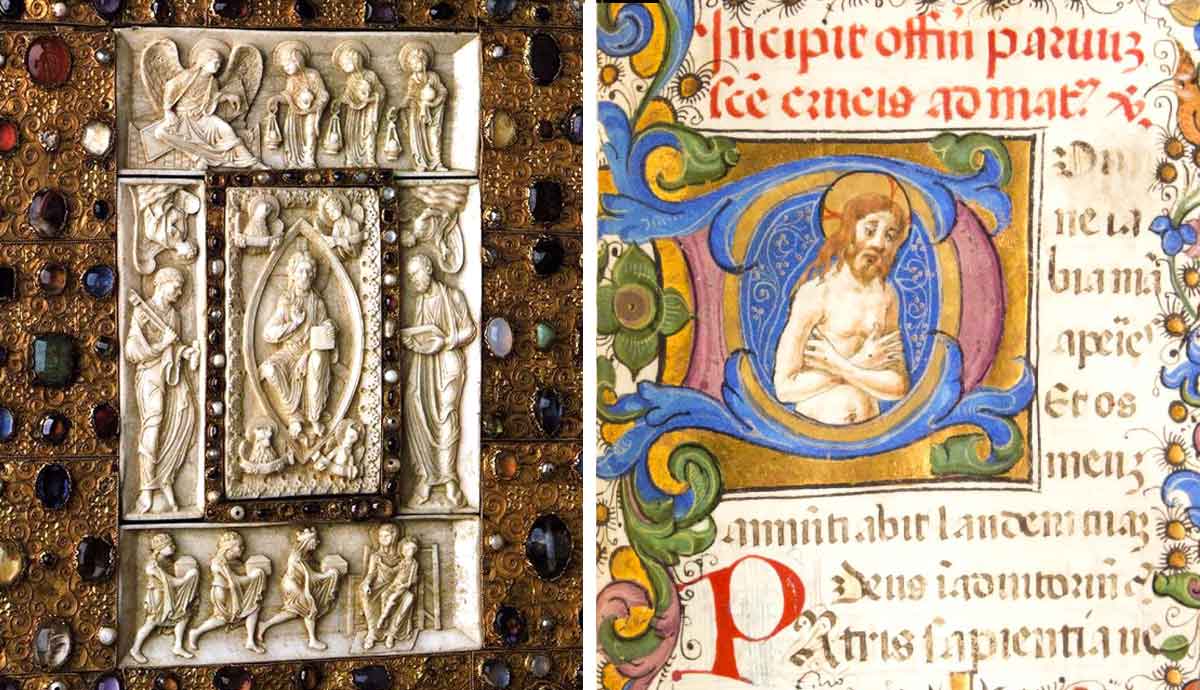 Incipit offiñ paruuʒ
scē crucis ad mat᷑
ne la
bia mā
apeīe
Et os
meuʒ
annūtiabit laudem tuaʒ
Deus ī adiutoriū
PAtris sapientia ue